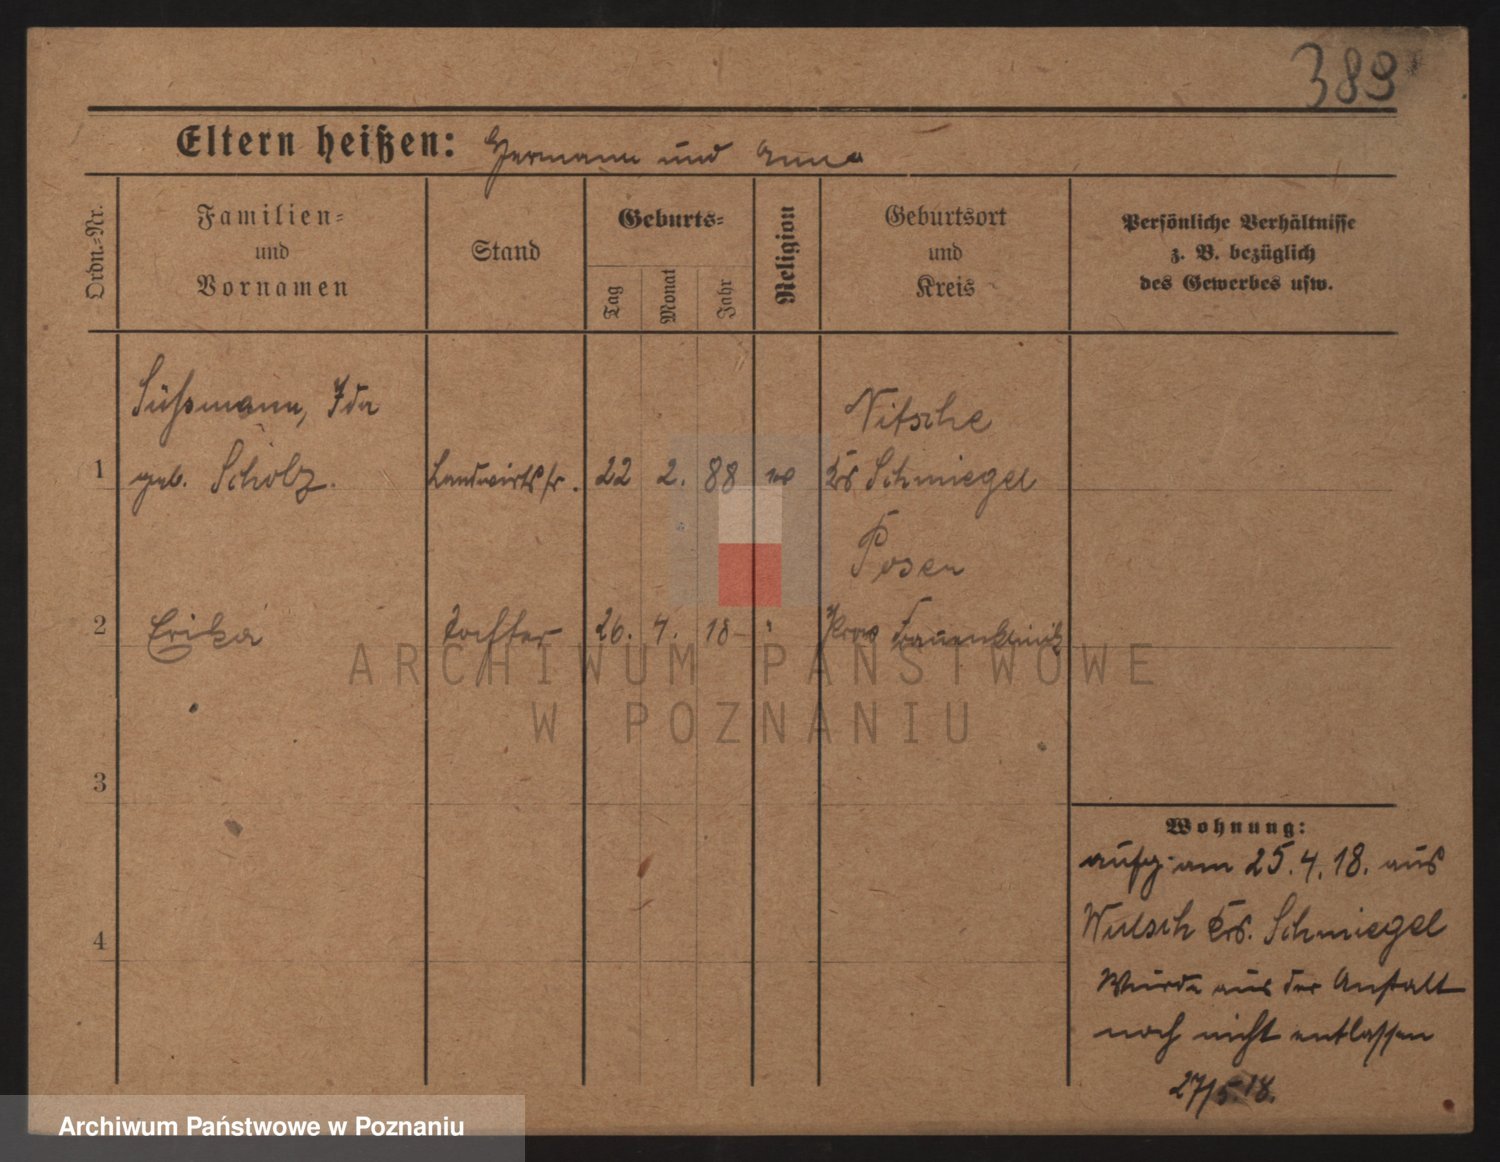 389
Eltern heißen: Hermann und Anna
Ordn.-Nr.
Familien-
und
Vornamen
Stand
Geburts-
Tag
Monat
Jahr
Religion
Geburtsort
und
Kreis
Persönliche Verhältnisse
z. B. bezüglich
des Gewerbes usw.
Süßmann, Ida
Nitsche
1 geb. Scholz. Landwirtsfr. 22 2. 88 Krs Schmiegel
Posen
2 Erika Tochter 26. 4. 18 "
3
4
Wohnung:
aufg. am 25.4.18. aus
Wulsch Krs. Schmiegel
Wurde aus der Anstalt
noch nicht entlassen
27/5.18.
ARCHIWUM PAŃSTWOWE
W POZNANIU
Archiwum Państwowe w Poznaniu